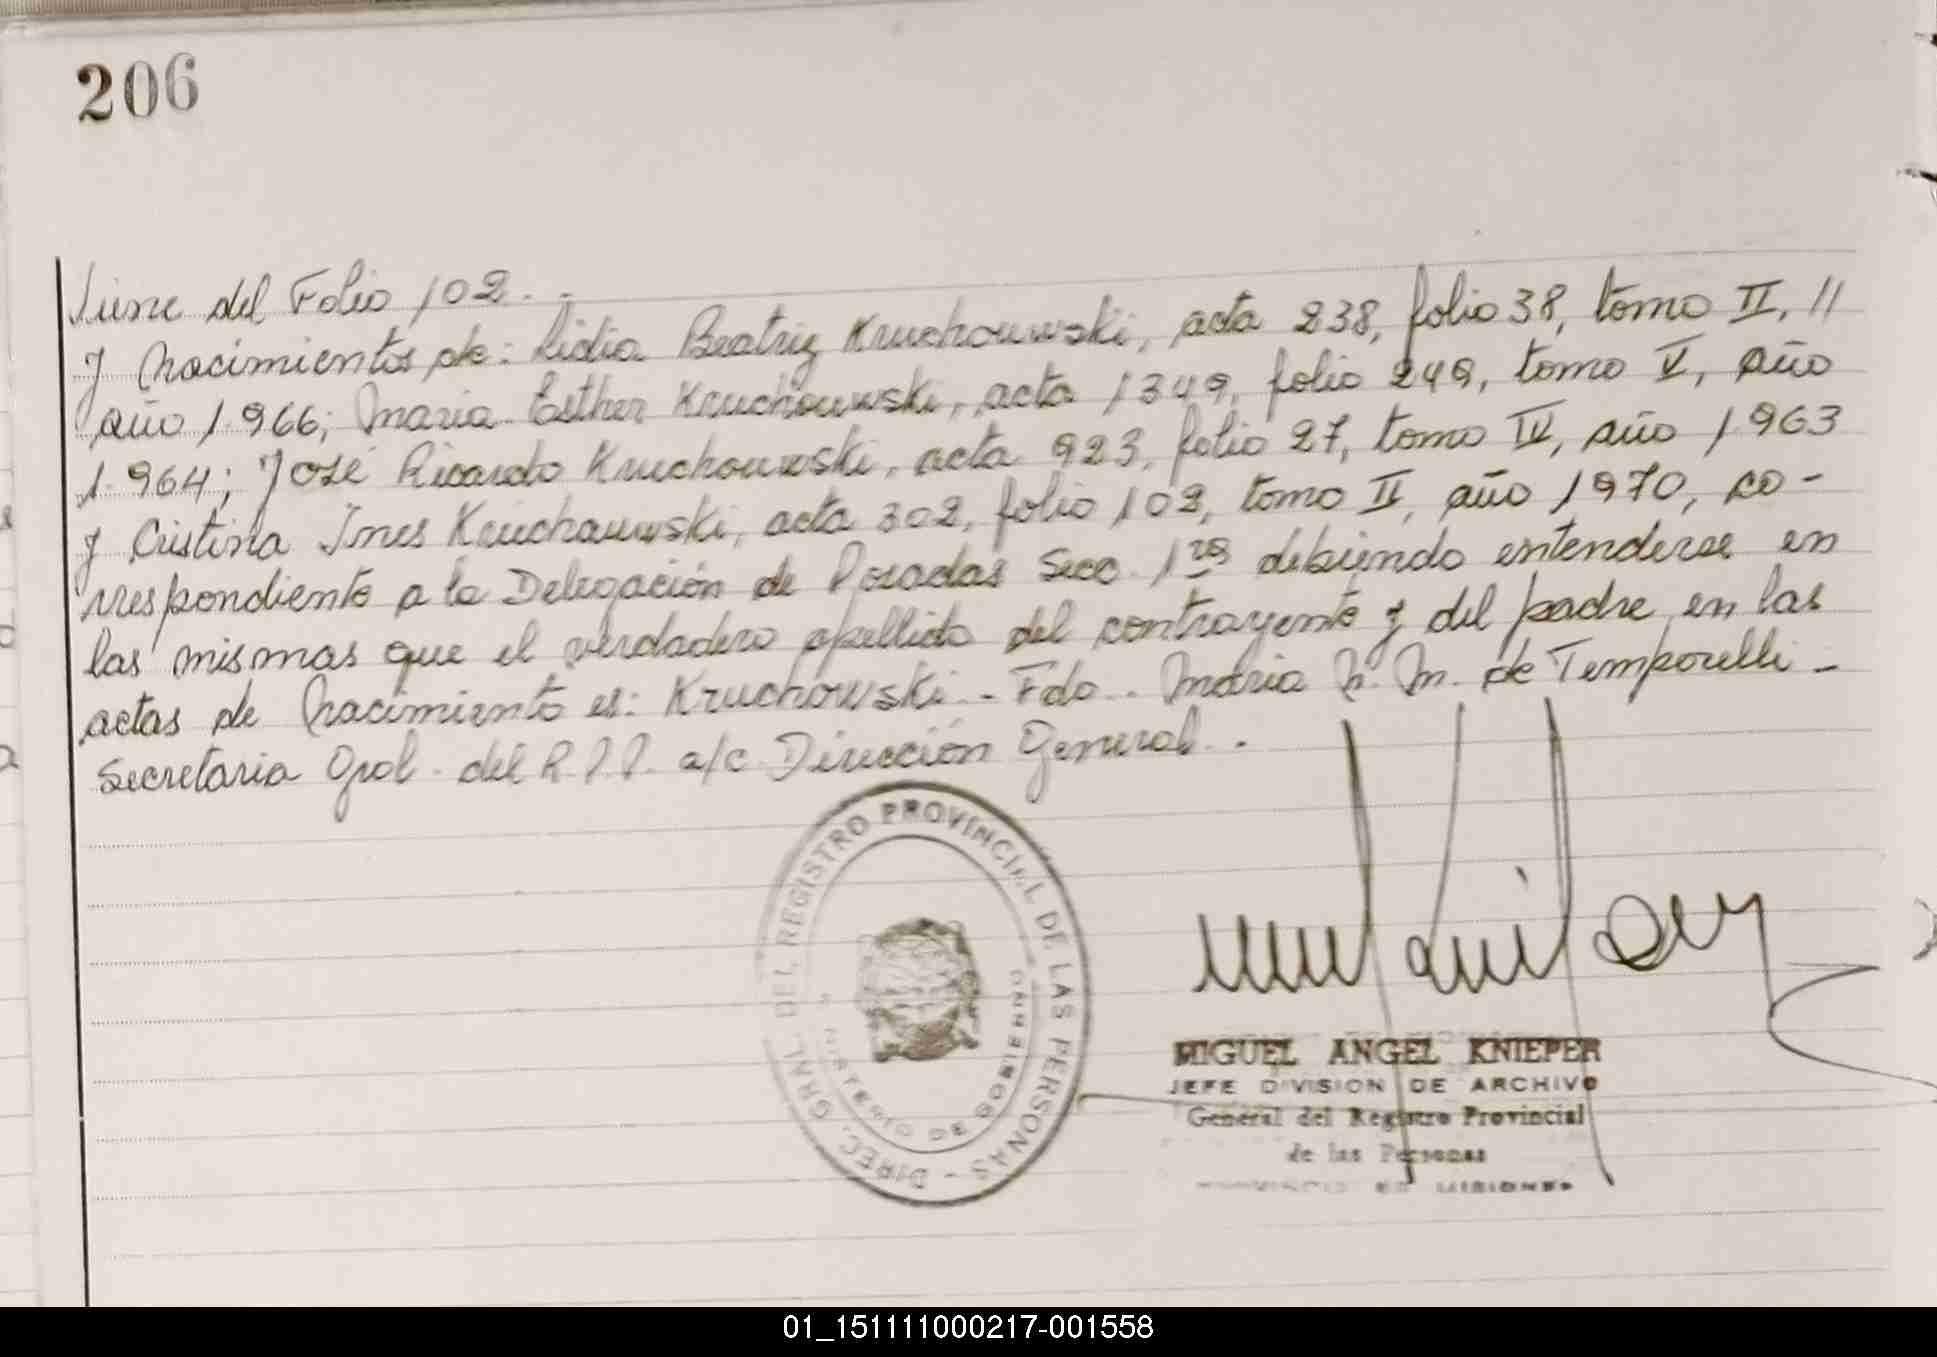 206
Viene del Folio 102.-
y Nacimientos de: Lidia Beatriz Kruchouwski, acta 238, folio 38, tomo II, //
año 1.966; Maria Esther Kruchouwski, acta 1349, folio 249, tomo V, año
1.964; José Ricardo Kruchouwski, acta 923, folio 27, tomo IV, año 1963
y Cristina Ines Kruchauwski, acta 302, folio 102, tomo II, año 1970, co-
rrespondiente a la Delegación de Posadas Secc. 1ra debiendo entenderse en
las mismas que el verdadero apellido del contrayente y del padre en las
actas de Nacimiento es: Kruchowski.- Fdo.- Maria N. M. de Temporelli -
Secretaria Gral. del R.P.P. a/c Dirección General.-
DIREC. GRAL. DEL REGISTRO PROVINCIAL DE LAS PERSONAS -
MINISTERIO DE GOBIERNO
MIGUEL ANGEL KNIEPER
JEFE DIVISION DE ARCHIVO
General del Registro Provincial
de las Personas
PROVINCIA DE MISIONES
01_151111000217-001558